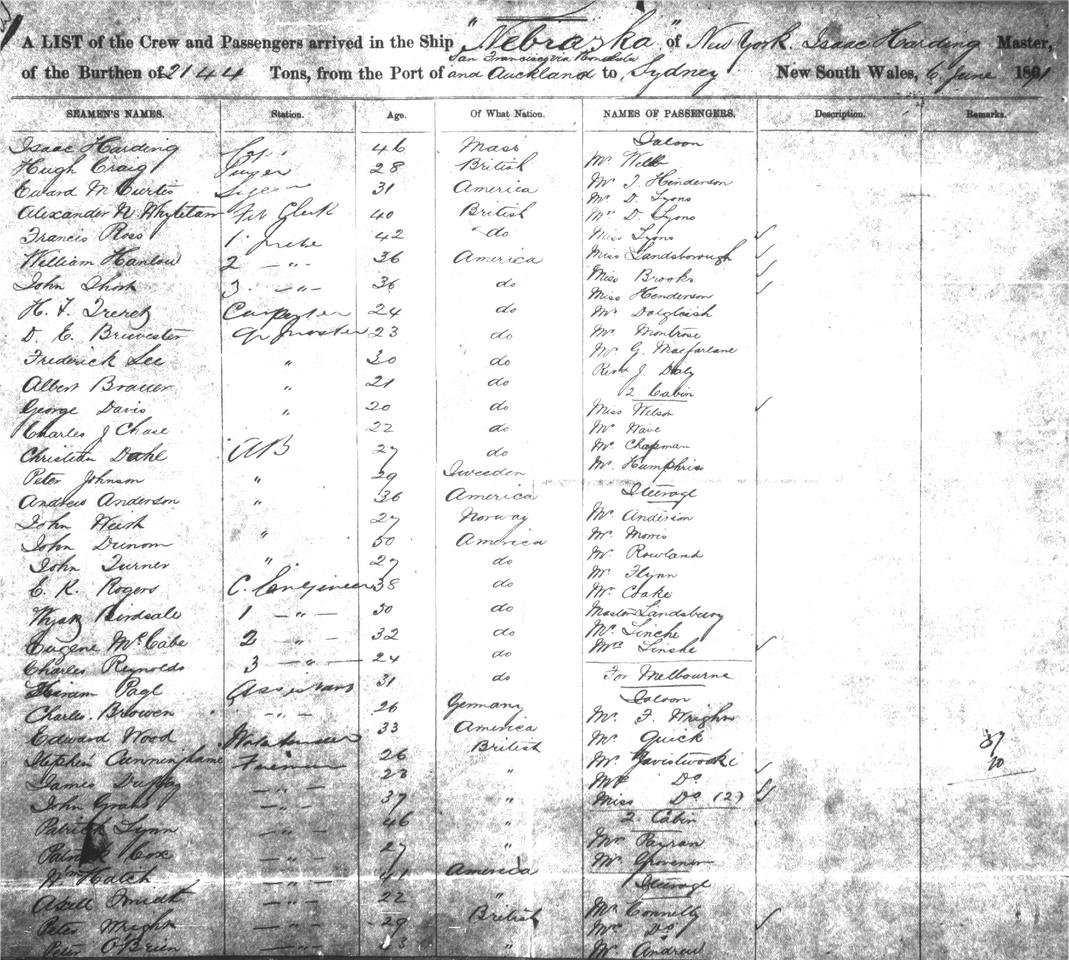 A LIST of the Crew and Passengers arrived in the Ship "Nebraska" of New York. Isaac Harding Master,
San Francisco via Honolulu
of the Burthen of 2144 Tons, from the Port of and Auckland to Sydney New South Wales, 6 June 18
SEAMEN'S NAMES. Station. Age. Of What Nation. NAMES OF PASSENGERS. Description. Remarks.
Isaac Harding 46 Mass Saloon
Hugh Craig Purser 28 British Mr Webb
Edward M Curtis 31 America Mr J. Henderson
Mr D. Lyons
Alexander N. Clerk 40 British D. Lyons
Francis Ross 1 42 do Miss Lyons
William Hanlou 2 — " — 36 America Miss Landsborough
John Short 3 — " — 36 do Miss Brooks
Miss Henderson
H. F. Carpenter 24 do Mr Dalgleish
D. E. Brewester Qr Master 23 do Mr Montrose
Frederick Lee " 30 do Mr G. Macfarlane
Albert " 21 do Revd J Daly
2 Cabin
George Davis " 20 do Miss Wilson
Charles J Chase 22 do Mr
Christian Dahl AB 27 do Mr Chapman
Peter Johnson " 29 Sweeden Mr Humphris
Andrew Anderson " 36 America Steerage
John 27 Norway Mr Anderson
John " 50 America Mr Morris
John Turner " 27 do Mr Rowland
E. K. Rogers C. Engineer 38 do Mr Flynn
Birdsale 1 — " — 30 do Mr Coake
Master Landsbury
Eugene McCabe 2 — " — 32 do Mr Linche
Charles Reynolds 3 — " — 24 do Mrs Linche
Hiram Page Assistant 31 do For Melbourne
Charles Browen — " — 26 Germany Saloon
Edward Wood 33 America Mr F. Wright
Stephen Cunninghame Fireman 26 British Mr Quick
James Duffy — " — 23 " Mr
John — " — 37 " Mrs Do
Miss Do (2)
Patrick Lynn — " — 46 " 2 Cabin
Patrick Cox — " — 27 " Mr
Wm Hatch — " — 41 America Mr Grosvenor
Smith — " — 22 " Steerage
Peter Wright — " — 29 British Mr Connelly
Mrs Do
Peter O'Brien — " — "  Mr Andrew